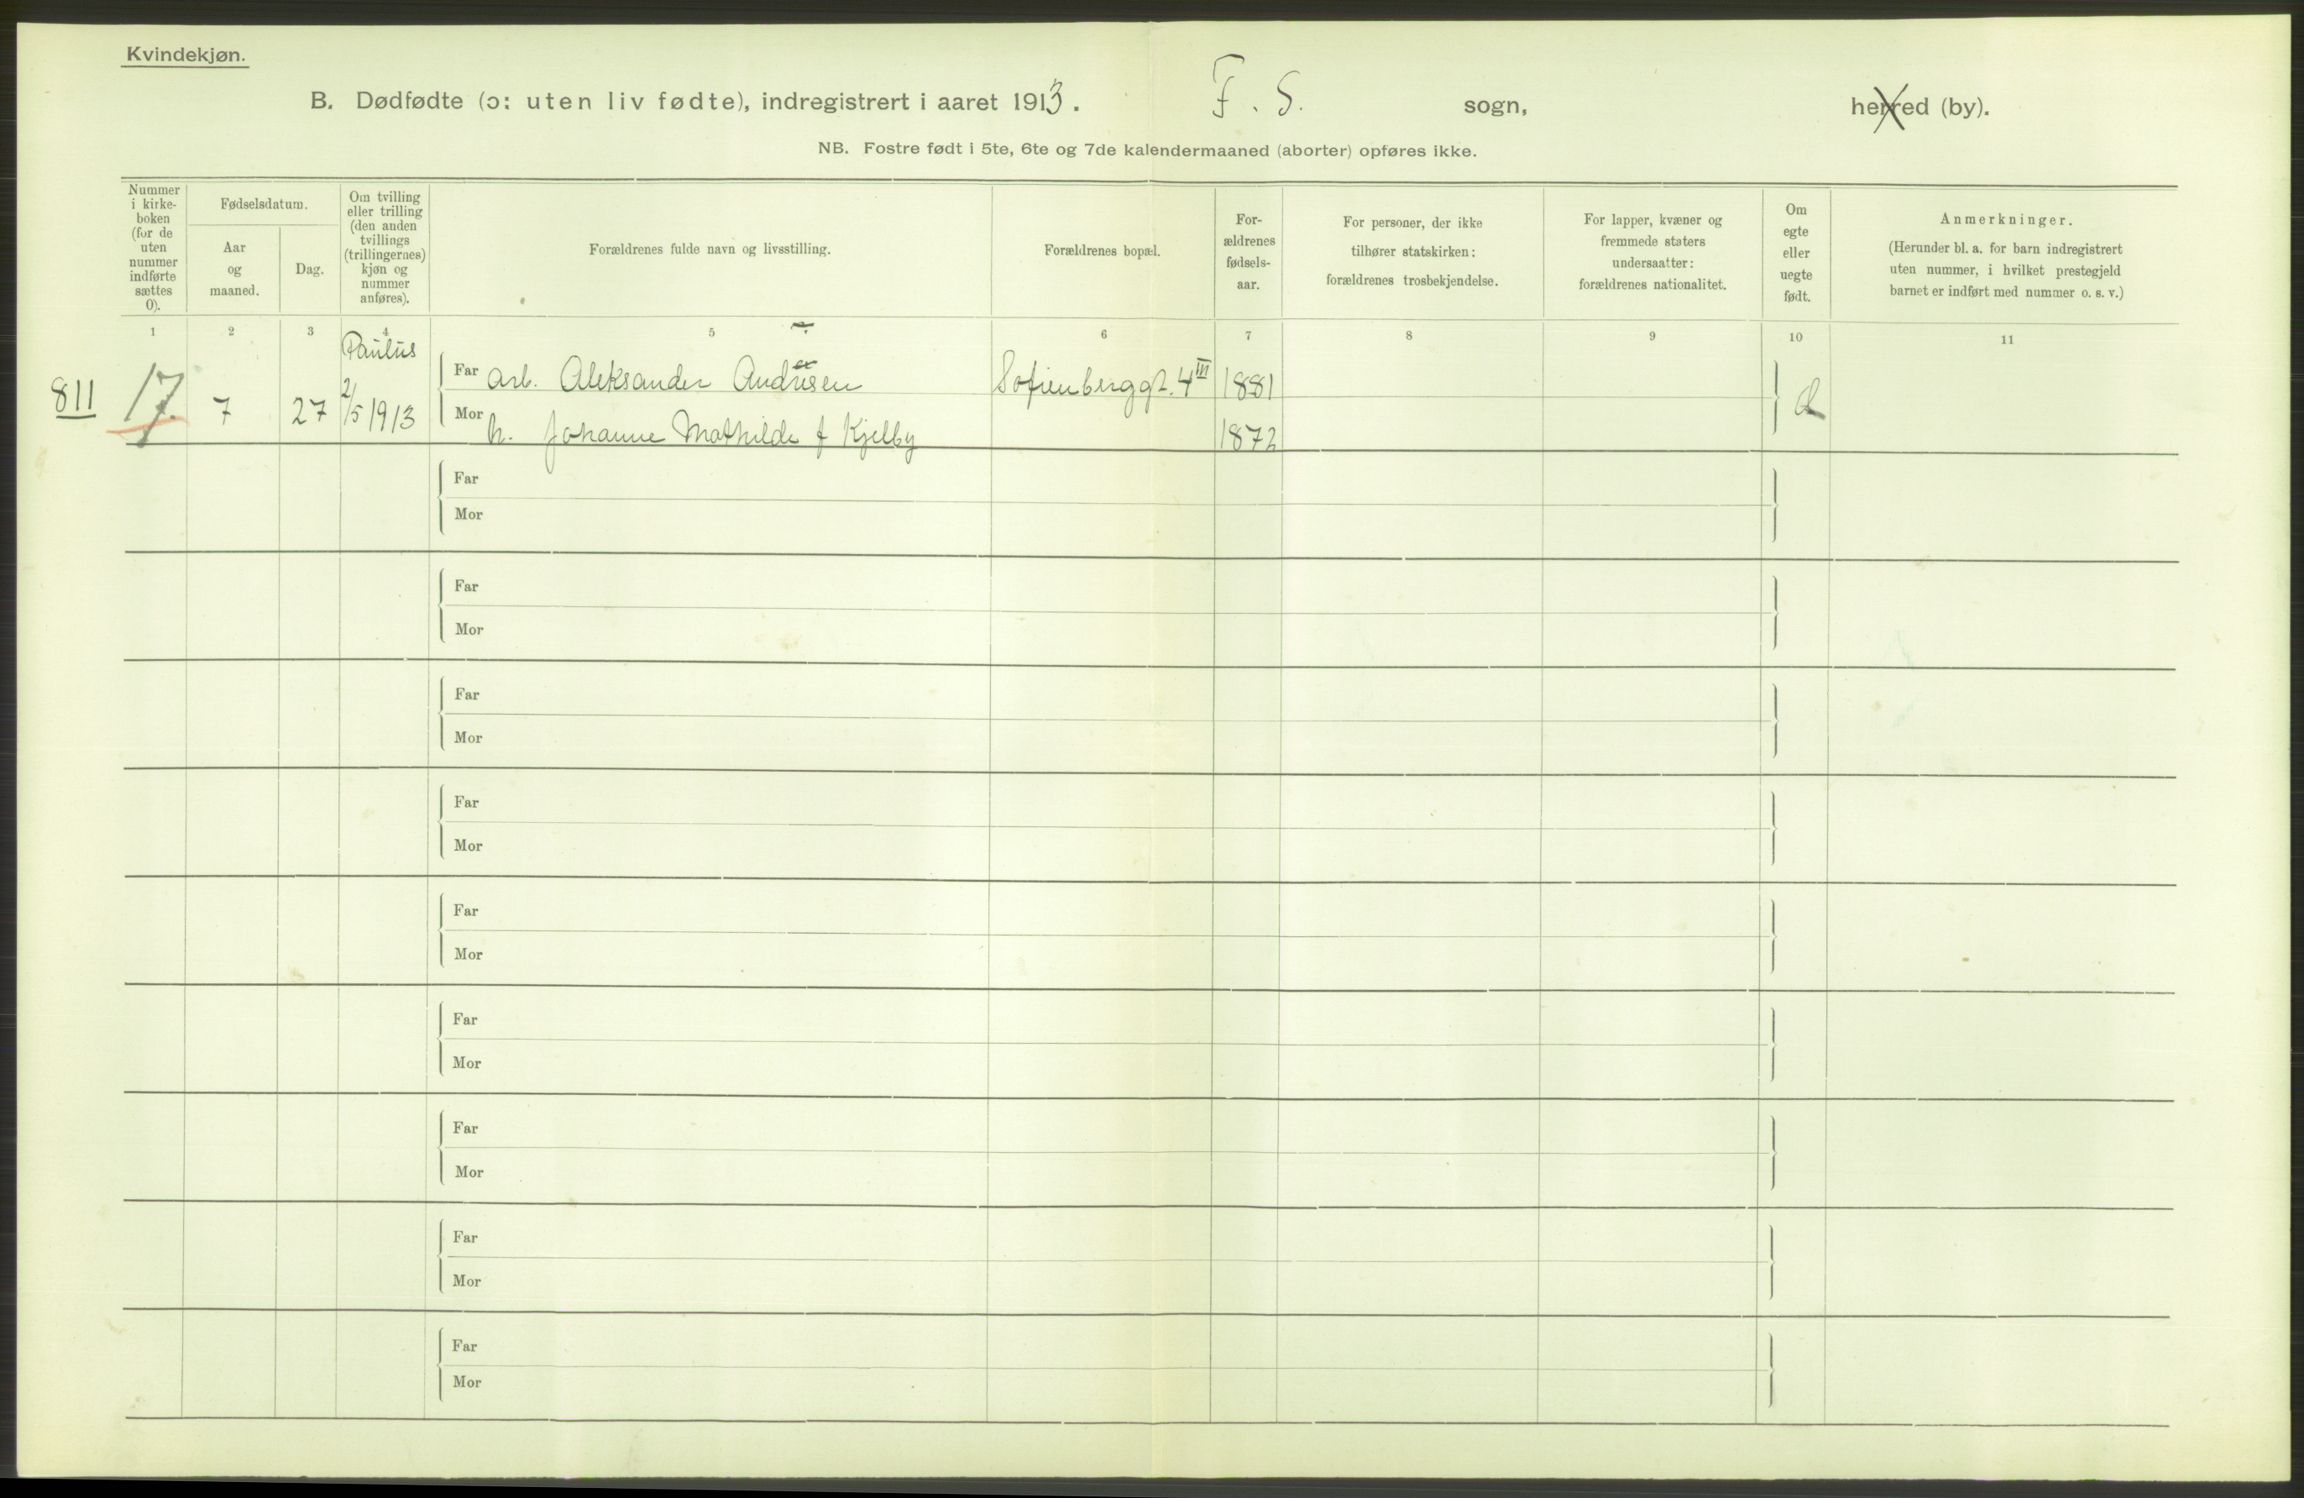 Kvindekjøn.
B. Dødfødte (ɔ: uten liv fødte), indregistrert i aaret 1913. F. S. sogn, herred (by).
NB. Fostre født i 5te, 6te og 7de kalendermaaned (aborter) opføres ikke.
Nummer i kirke- boken (for de uten nummer indførte sættes 0).
Fødselsdatum.
Aar og maaned.
Dag.
Om tvilling eller trilling (den anden tvillings (trillingernes) kjøn og nummer anføres).
Forældrenes fulde navn og livsstilling.
Forældrenes bopæl.
For- ældrenes fødsels- aar.
For personer, der ikke tilhører statskirken: forældrenes trosbekjendelse.
For lapper, kvæner og fremmede staters undersaatter: forældrenes nationalitet.
Om egte eller uegte født.
Anmerkninger.
(Herunder bl. a. for barn indregistrert uten nummer, i hvilket prestegjeld barnet er indført med nummer o. s. v.)
1 2 3 4 5 6 7 8 9 10 11
Paulus
Far arb. Aleksander Andresen Sofienberggt. 4 III 1881
811 17. 7 27 2/5 1913
Mor h. Johanne Mathilde f Kjelby 1872
Far
Mor
Far
Mor
Far
Mor
Far
Mor
Far
Mor
Far
Mor
Far
Mor
Far
Mor
Far
Mor